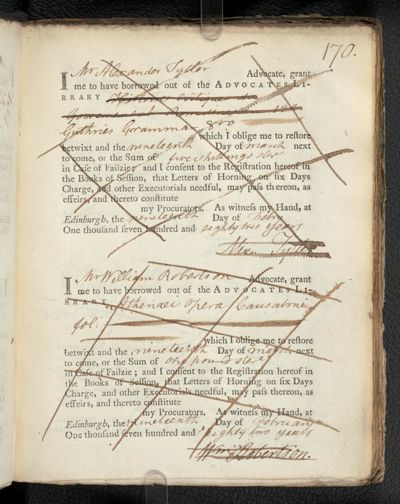 170.
I Mr Alexander Tytler Advocate, grant
me to have borrowed out of the ADVOCATES LI-
BRARY Histoire Critique de
Gouvernement Romain
Guthries Grammar 8vo
which I oblige me to restore
betwixt and the nineteenth Day of march next
to come, or the Sum of five shillings ster
in Case of Failzie; and I consent to the Registration hereof in
the Books of Session, that Letters of Horning, on six Days
Charge, and other Executorials needful, may pass thereon, as
effeirs, and thereto constitute
my Procurators. As witness my Hand, at
Edinburgh, the nineteenth Day of Febry
One thousand seven hundred and eighty two years
Alex Tytler
I Mr William Robertson Advocate, grant
me to have borrowed out of the ADVOCATES LI-
BRARY Athenaei opera Causaboni
fol:
which I oblige me to restore
betwixt and the nineteenth Day of march next
to come, or the Sum of one pound ster
in Case of Failzie; and I consent to the Registration hereof in
the Books of Session, that Letters of Horning on six Days
Charge, and other Executorials needful, may pass thereon, as
effeirs, and thereto constitute
my Procurators. As witness my Hand, at
Edinburgh, the nineteenth Day of February
One thousand seven hundred and eighty two years
Wm Robertson.